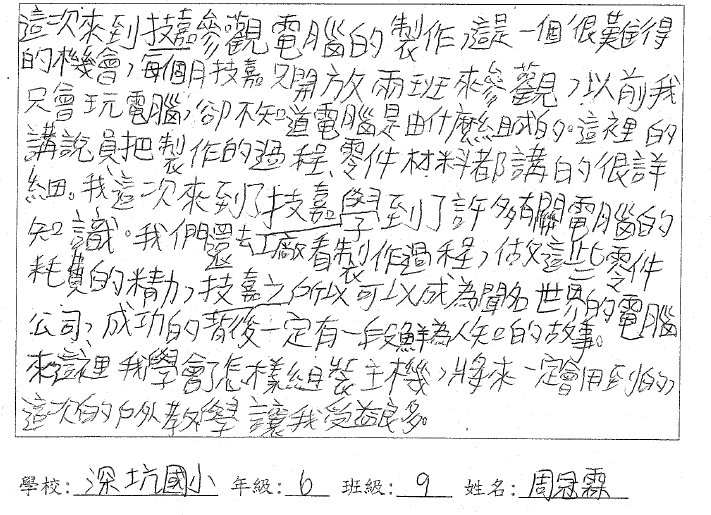 這次來到技嘉參觀電腦的製作，這是一個很難得
的機會，每個月技嘉只開放兩班來參觀，以前我
只會玩電腦，卻不知道電腦是由什麼組成的。這裡的
講說員把製作的過程、零件材料都講的很詳
細。我這次來到了技嘉學到了許多有關電腦的
知識。我們還去工廠看製作過程，做這些零件
耗費的精力，技嘉之所以可以成為聞名世界的電腦
公司，成功的背後一定有一段鮮為人知的故事。
來這裡我學會了怎樣組裝主機，將來一定會用到的，
這次的戶外教學讓我受益良多。
學校：深坑國小 年級：6 班級：9 姓名：周冠霖